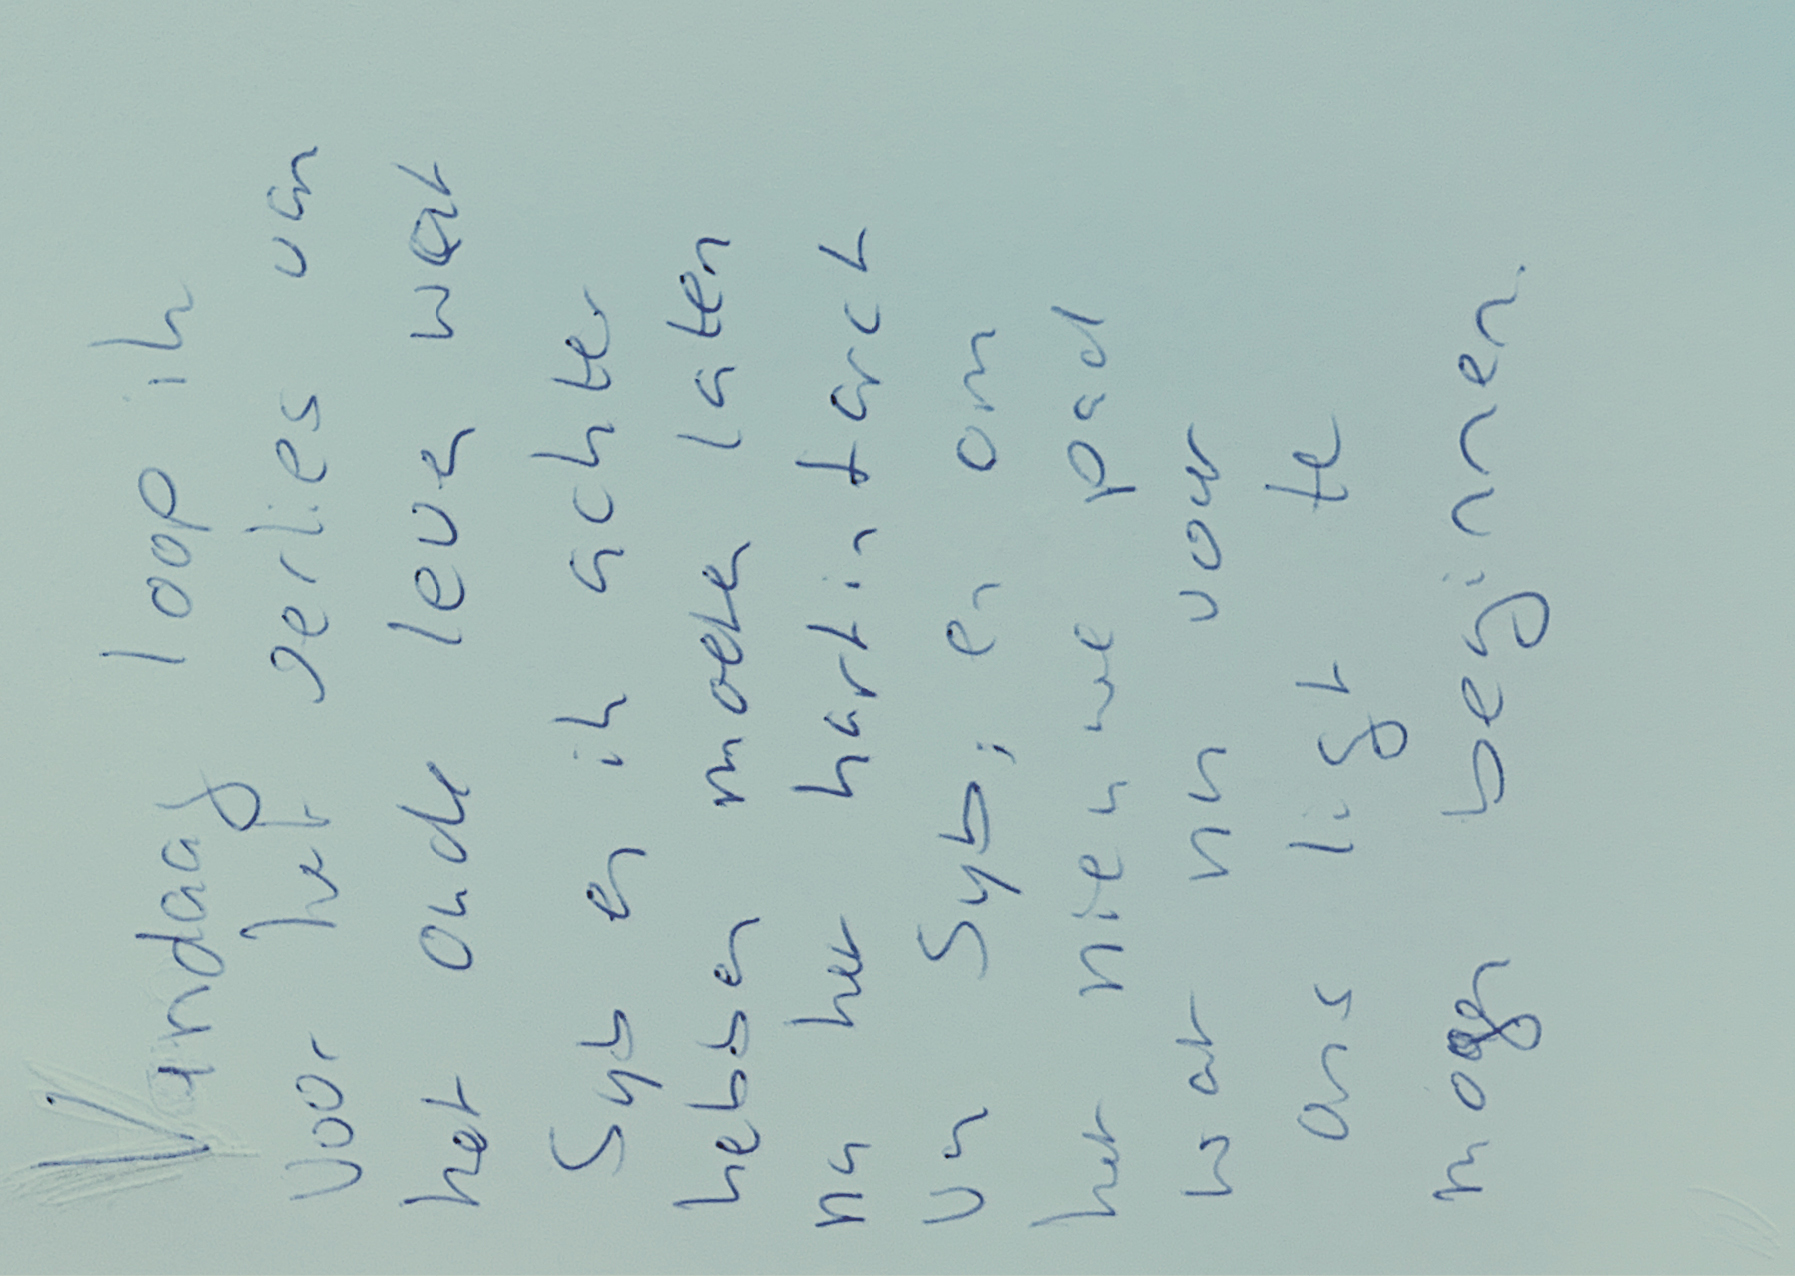 Vandaag loop ik
voor het verlies van
het oude leven wat
Syb en ik achter
hebben moeten laten
na het hartinfarct
van Syb; en om
het nieuwe pad
wat nu voor
ons ligt te
mogen beginnen.